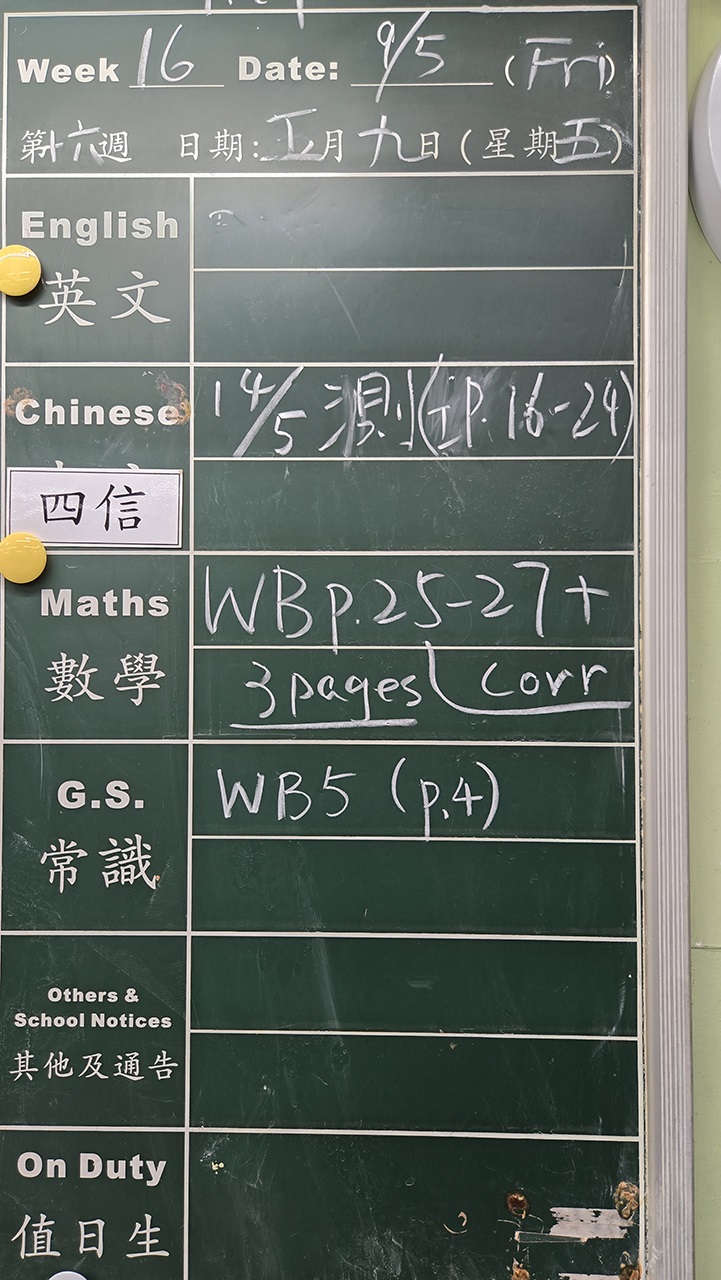 Week 16 Date: 9/5 (Fri)
第十六週 日期:五月九日(星期五)
English
英文
Chinese 14/5 測(p.16-24)
四信
Maths WBp.25-27+
數學 3pages corr
G.S. WB5 (p.4)
常識
Others &
School Notices
其他及通告
On Duty
值日生